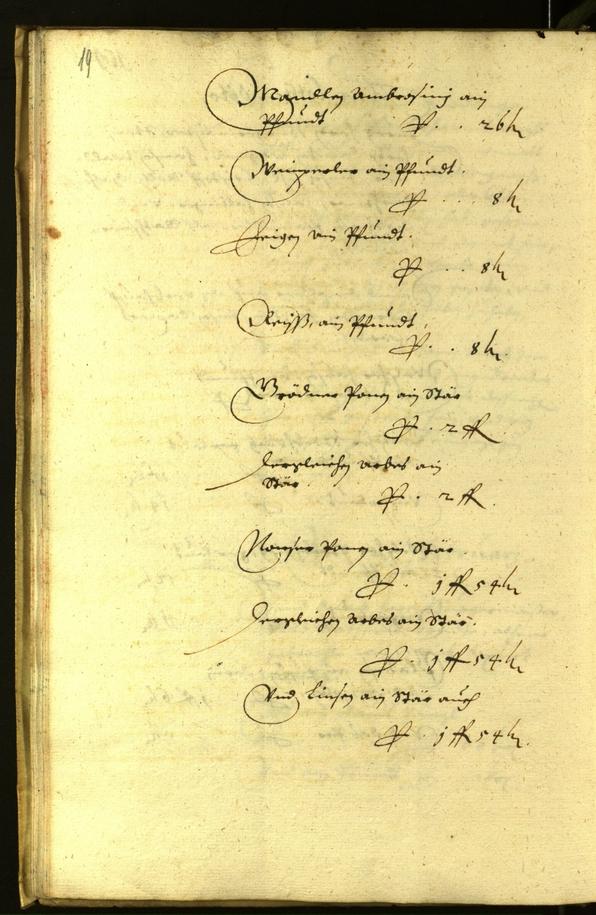 19
Mandlen Ambrosinj ain
Pfundt p. . . 26 kr
Weinperler ain Pfundt.
p . . . 8 kr
Feigen ain Pfundt.
p . . 8 kr
Reiß, ain Pfundt,
p. . . 8 kr.
Prödner Ponen ain Stär
p . 2 fl
dergleichen Arbes ain
Stär. p . 2 fl.
Nonser Ponen ain Stär.
p . 1 fl 54 kr
dergleichen Arbes ain Stär.
p . 1 fl 54 kr
Vnd Linsen ain Stär auch
p . 1 fl 54 kr.